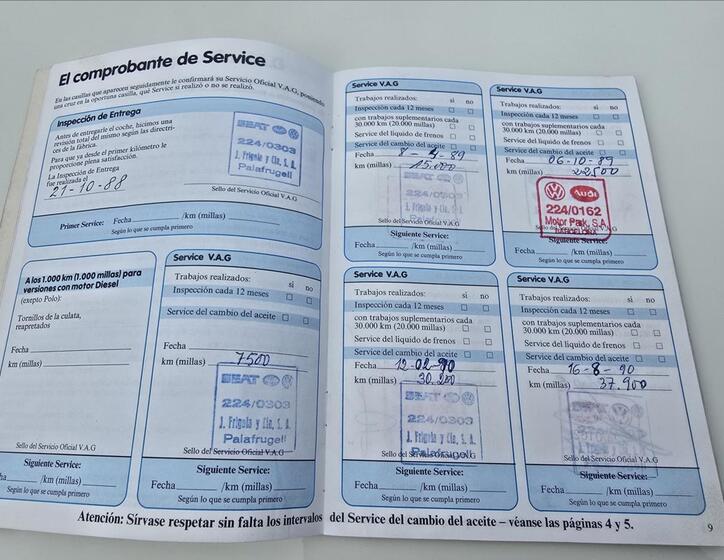 El comprobante de Service
En las casillas que aparecen seguidamente le confirmará su Servicio Oficial V.A.G, poniendo
una cruz en la oportuna casilla, qué Service si realizó o no se realizó.
Inspección de Entrega
Antes de entregarle el coche, hicimos una
revisión total del mismo según las directri-
ces de la fábrica.
Para que ya desde el primer kilómetro le
proporcione plena satisfacción.
La Inspección de Entrega
fue realizada el
21-10-88
SEAT
224/0303
J. Frigola y Cía, S. A.
Palafrugell
Sello del Servicio Oficial V.A.G
Primer Service: Fecha /km (millas)
Según lo que se cumpla primero
A los 1.000 km (1.000 millas) para
versiones con motor Diesel
(exepto Polo):
Tornillos de la culata,
reapretados
Fecha
km (millas)
Sello del Servicio Oficial V.A.G
Siguiente Service:
/km (millas)
Según lo que se cumpla primero
Service V.A.G
Trabajos realizados: si no
Inspección cada 12 meses
Service del cambio del aceite
Fecha
km (millas) 7500
SEAT
224/0303
J. Frigola y Cía, S. A.
Palafrugell
Sello del Servicio Oficial V.A.G
Siguiente Service:
Fecha /km (millas)
Según lo que se cumpla primero
Service V.A.G
Trabajos realizados: si no
Inspección cada 12 meses
con trabajos suplementarios cada
30.000 km (20.000 millas)
Service del líquido de frenos
Service del cambio del aceite
Fecha 8-4-89
km (millas) 15.000
SEAT
224/0303
J. Frigola y Cía, S. A.
Palafrugell
Sello del Servicio Oficial V.A.G
Siguiente Service:
Fecha /km (millas)
Según lo que se cumpla primero
Service V.A.G
Trabajos realizados: si no
Inspección cada 12 meses
con trabajos suplementarios cada
30.000 km (20.000 millas)
Service del líquido de frenos
Service del cambio del aceite
Fecha 06-10-89
km (millas) 22500
Audi
224/0162
Motor Park, S.A.
BARCELONA
Siguiente Service:
Fecha /km (millas)
Según lo que se cumpla primero
Service V.A.G
Trabajos realizados: si no
Inspección cada 12 meses
con trabajos suplementarios cada
30.000 km (20.000 millas)
Service del líquido de frenos
Service del cambio del aceite
Fecha 12-02-90
km (millas) 30.200
SEAT
224/0303
J. Frigola y Cía, S. A.
Palafrugell
Sello del Servicio Oficial V.A.G
Siguiente Service:
Fecha /km (millas)
Según lo que se cumpla primero
Service V.A.G
Trabajos realizados: si no
Inspección cada 12 meses
con trabajos suplementarios cada
30.000 km (20.000 millas)
Service del líquido de frenos
Service del cambio del aceite
Fecha 16-8-90
km (millas) 37.900
Sello del Servicio Oficial V.A.G
Siguiente Service:
Fecha /km (millas)
Según lo que se cumpla primero
Atención: Sírvase respetar sin falta los intervalos del Service del cambio del aceite – véanse las páginas 4 y 5.
9